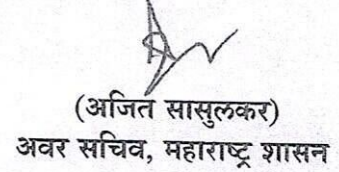 (अजित सासुलकर)
अवर सचिव, महाराष्ट्र शासन